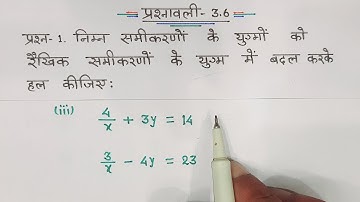 प्रश्नावली- 3.6
प्रश्न- 1. निम्न समीकरणों के युग्मों को
रैखिक समीकरणों के युग्म में बदल करके
हल कीजिए:
(iii) 4/x + 3y = 14
3/x - 4y = 23